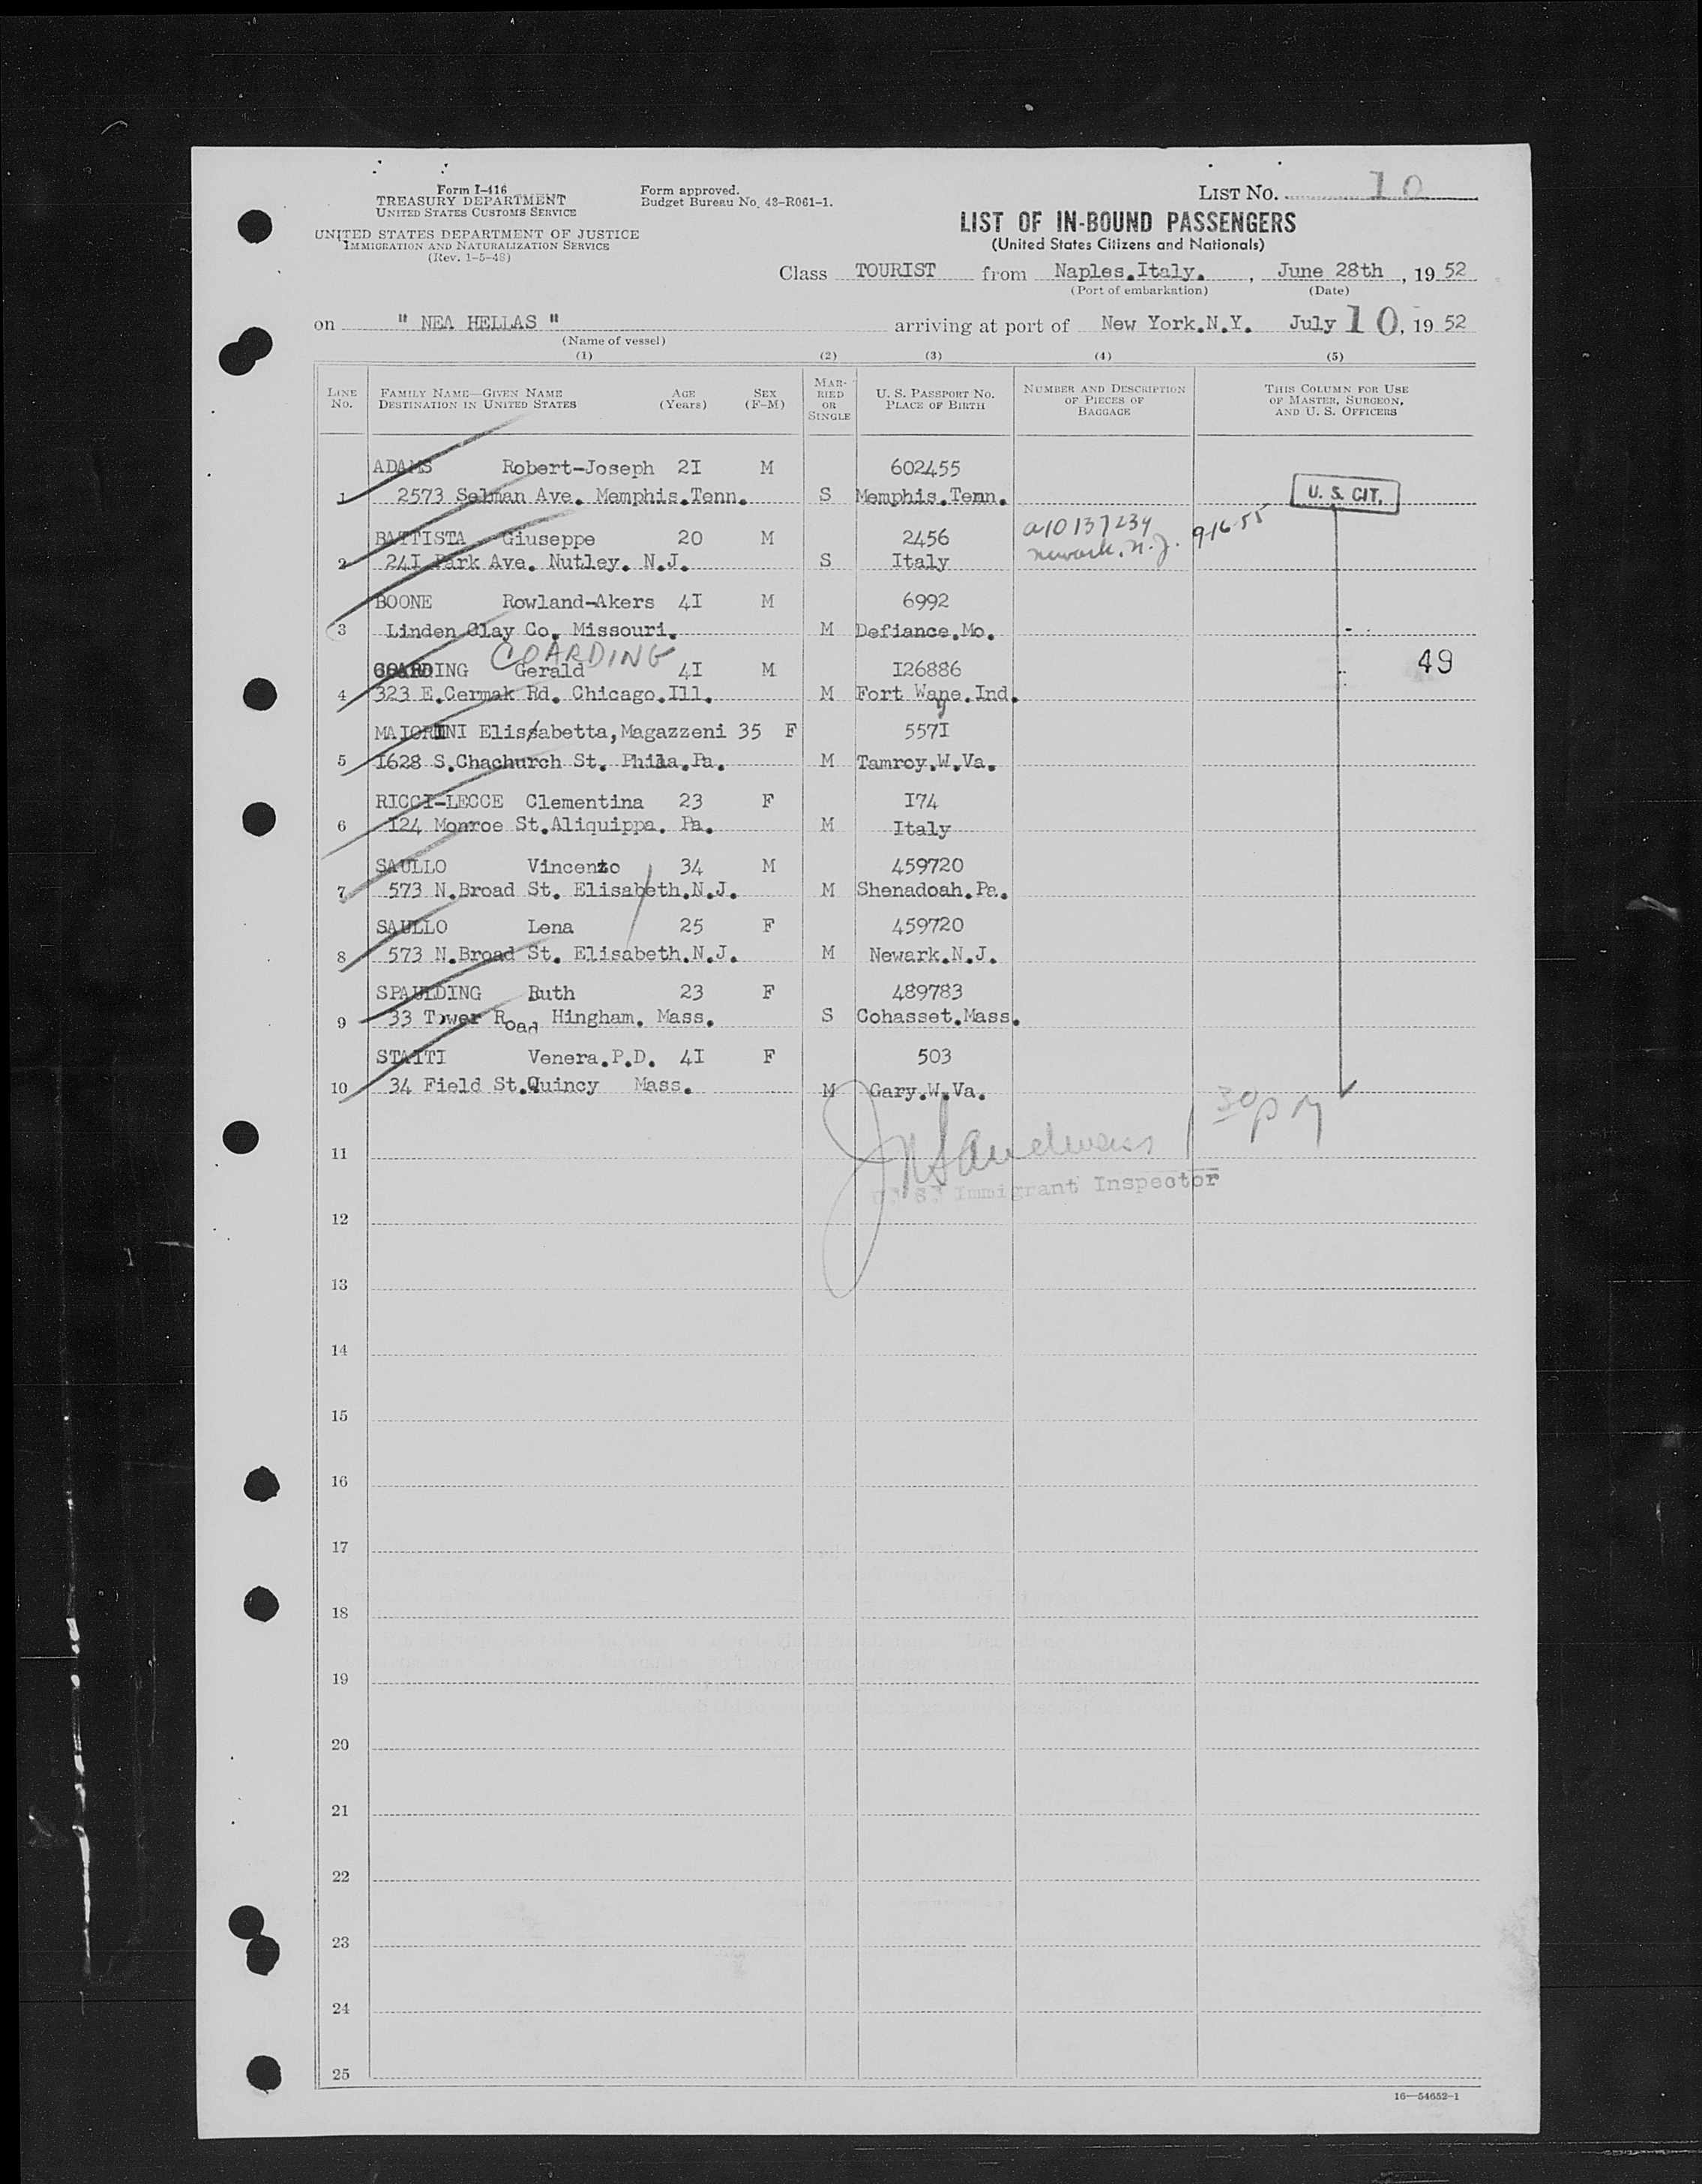 Form I-416
TREASURY DEPARTMENT
UNITED STATES CUSTOMS SERVICE
UNITED STATES DEPARTMENT OF JUSTICE
IMMIGRATION AND NATURALIZATION SERVICE
(Rev. 1-5-48)
Form approved.
Budget Bureau No. 43-R061-1.
LIST NO. 10
LIST OF IN-BOUND PASSENGERS
(United States Citizens and Nationals)
Class TOURIST from Naples.Italy. , June 28th , 19 52
(Port of embarkation) (Date)
on " NEA HELLAS " arriving at port of New York.N.Y. July 10, 19 52
(Name of vessel)
(1) (2) (3) (4) (5)
LINE NO. FAMILY NAME—GIVEN NAME DESTINATION IN UNITED STATES AGE (Years) SEX (F-M) MARRIED OR SINGLE U. S. PASSPORT NO. PLACE OF BIRTH NUMBER AND DESCRIPTION OF PIECES OF BAGGAGE THIS COLUMN FOR USE OF MASTER, SURGEON, AND U. S. OFFICERS
ADAMS Robert-Joseph 2I M 602455
1 2573 Selman Ave. Memphis.Tenn. S Memphis.Tenn. U. S. CIT.
BATTISTA Giuseppe 20 M 2456 a10137234 9-16-55
2 24I Park Ave. Nutley. N.J. S Italy Newark. N.J.
BOONE Rowland-Akers 4I M 6992
3 Linden Clay Co. Missouri. M Defiance.Mo.
COARDING
ING Gerald 4I M I26886 49
4 323 E.Cermak Rd. Chicago.Ill. M Fort Wayne.Ind.
MAIORINI Elissabetta,Magazzeni 35 F 557I
5 I628 S.Chachurch St. Phila.Pa. M Tamroy.W.Va.
RICCI-LECCE Clementina 23 F I74
6 I24 Monroe St.Aliquippa. Pa. M Italy
SAULLO Vincenzo 34 M 459720
7 573 N.Broad St. Elisabeth.N.J. M Shenadoah.Pa.
SAULLO Lena 25 F 459720
8 573 N.Broad St. Elisabeth.N.J. M Newark.N.J.
SPAULDING Ruth 23 F 489783
9 33 Tower Road Hingham. Mass. S Cohasset.Mass.
STAITI Venera.P.D. 4I F 503
10 34 Field St.Quincy Mass. M Gary.W.Va.
1 30 PM
11
U. S. Immigrant Inspector
12
13
14
15
16
17
18
19
20
21
22
23
24
25
16—54652-1